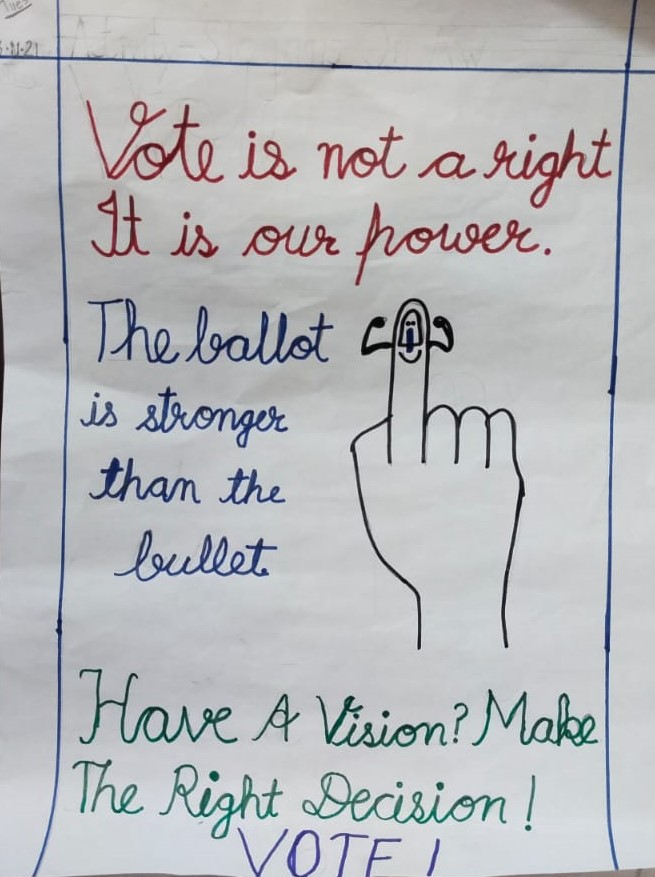 Vote is not a right
It is our power.
The ballot
is stronger
than the
bullet.
Have A Vision? Make
The Right Decision!
VOTE!